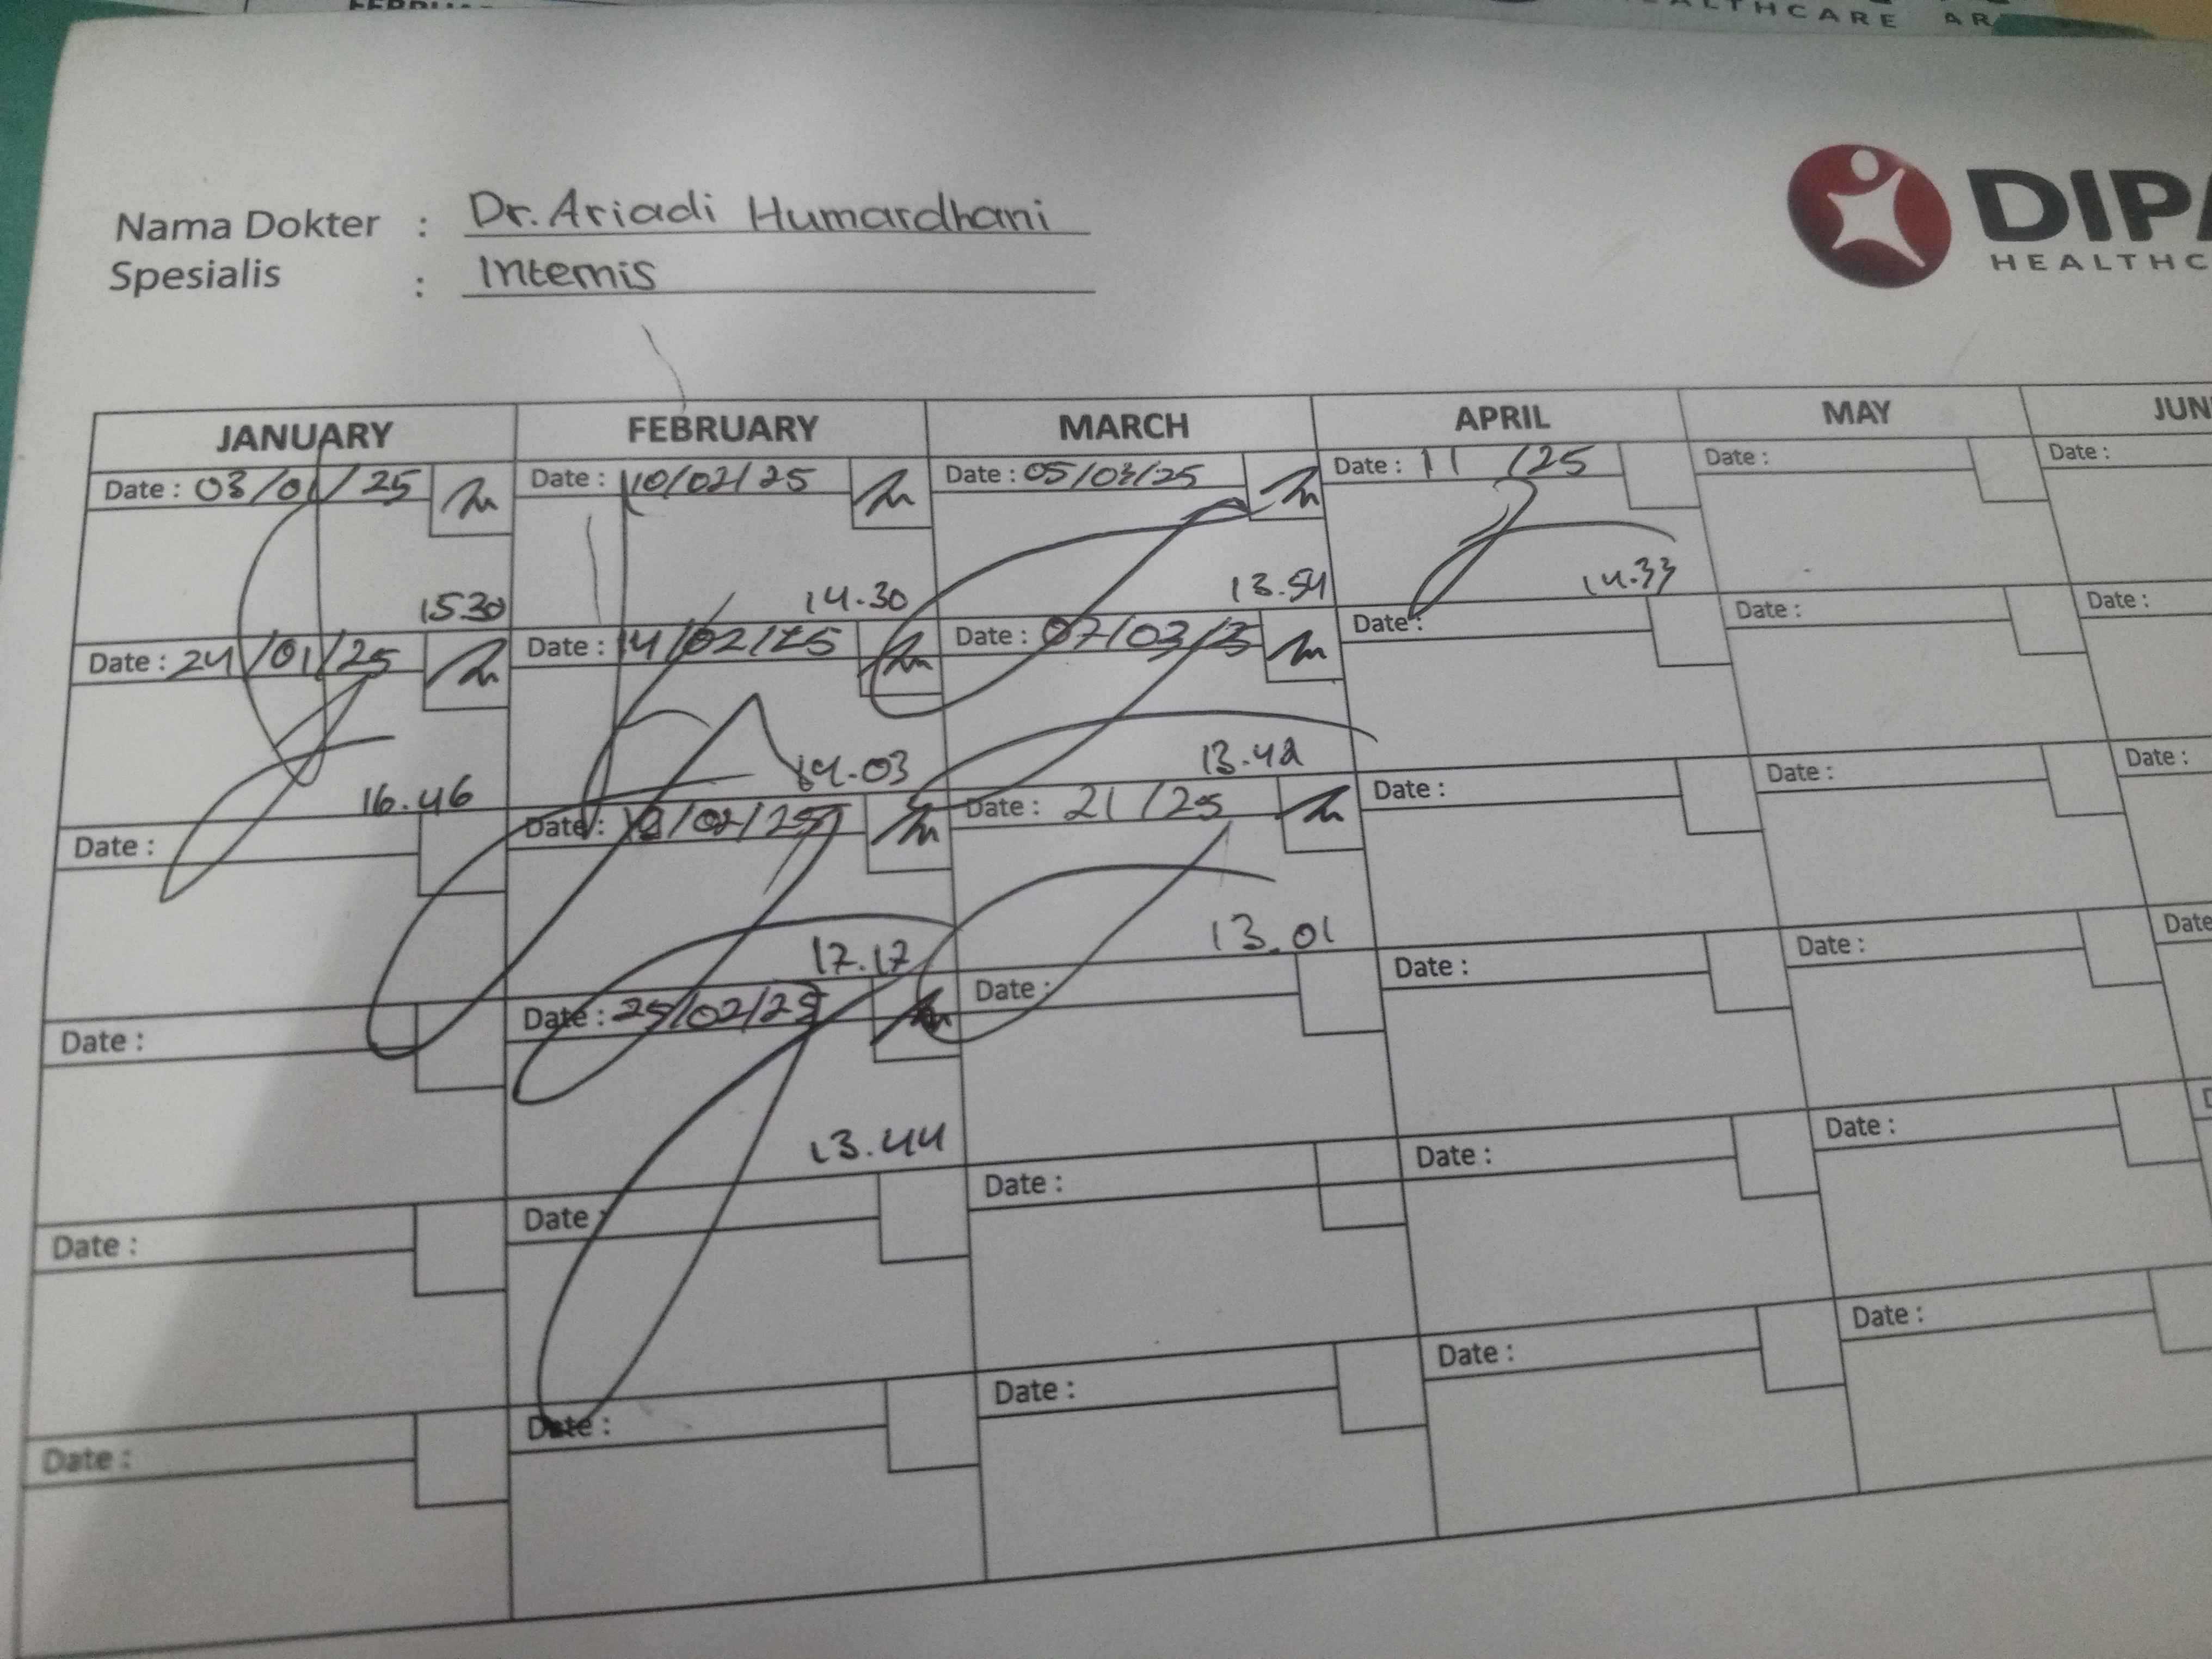 HEALTHCARE AR
Nama Dokter : Dr. Ariadi Humardhani
Spesialis : Internis
DIPA
HEALTHC
JANUARY FEBRUARY MARCH APRIL MAY JUN
Date : 03/01/25 Date : 10/02/25 Date : 05/03/25 Date : 11 /25 Date : Date :
15.30 14.30 13.54 14.33
Date : 24/01/25 Date : 14/02/25 Date : 07/03/25 Date : Date : Date :
16.46 14.03 13.42
Date : Date : /02/25 Date : 21 /25 Date : Date : Date :
17.17 13.01
Date : Date : 25/02/25 Date : Date : Date : Date
13.44
Date : Date : Date : Date : Date :
Date : Date : Date : Date : Date :